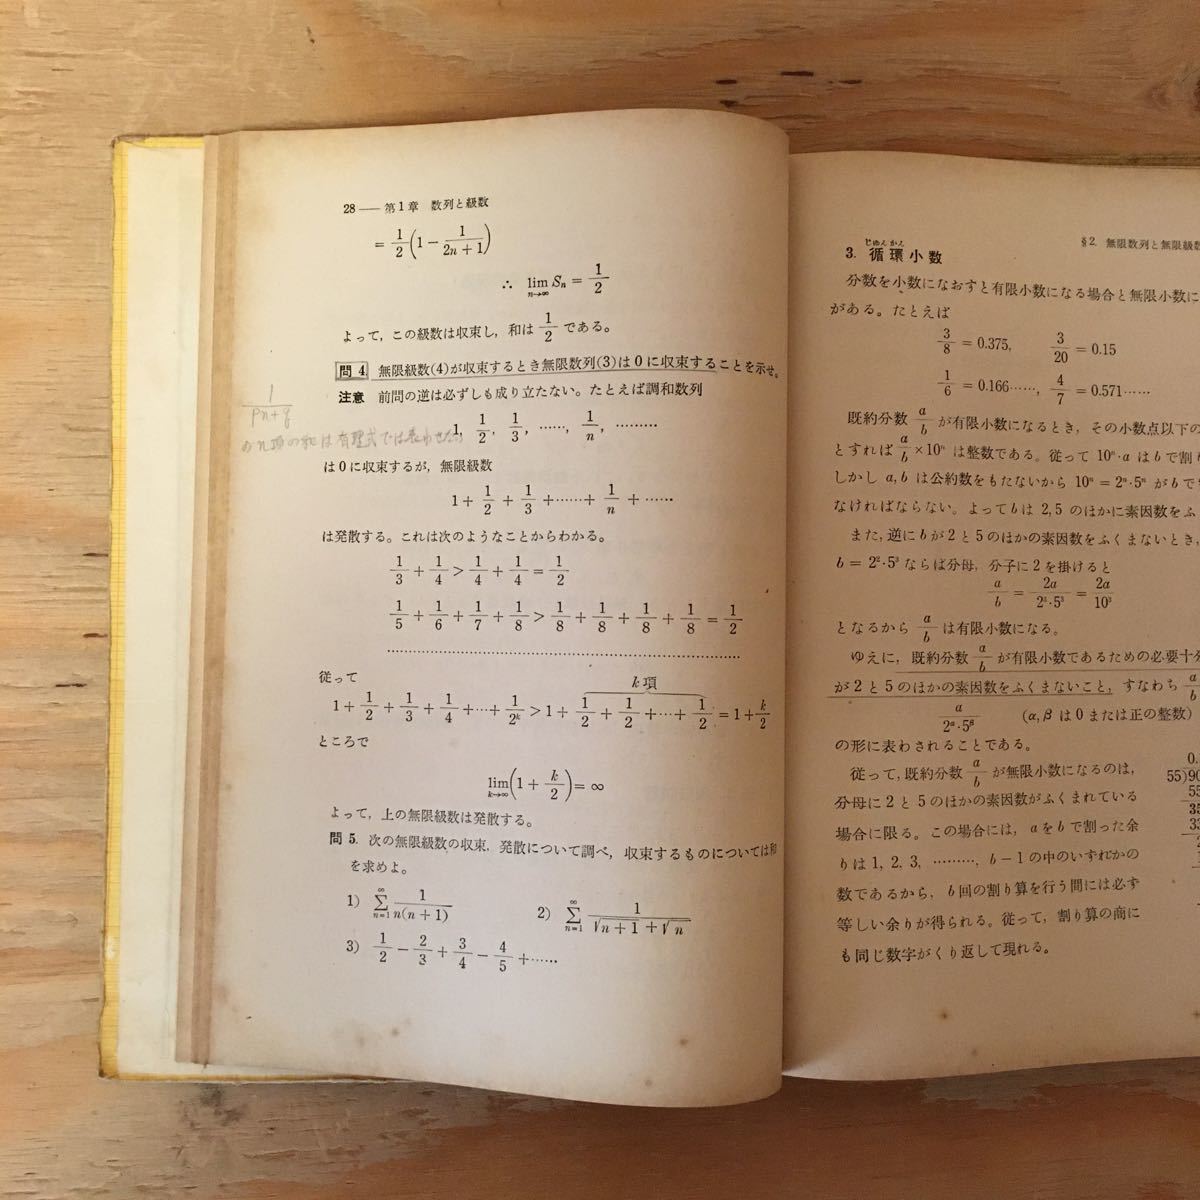 28 —— 第1章 数列と級数
= 1/2 (1 − 1/(2n+1))
∴ lim_{n→∞} Sₙ = 1/2
よって，この級数は収束し，和は 1/2 である。
問 4. 無限級数(4)が収束するとき無限数列(3)は0に収束することを示せ。
注意 前問の逆は必ずしも成り立たない。たとえば調和数列
1/(pn+q)
のn項の和は有理式では表わせない
1, 1/2, 1/3, ……, 1/n, ………
は0に収束するが，無限級数
1 + 1/2 + 1/3 + …… + 1/n + ……
は発散する。これは次のようなことからわかる。
1/3 + 1/4 > 1/4 + 1/4 = 1/2
1/5 + 1/6 + 1/7 + 1/8 > 1/8 + 1/8 + 1/8 + 1/8 = 1/2
………………………………………………
従って
k項
1 + 1/2 + 1/3 + 1/4 + … + 1/2ᵏ > 1 + 1/2 + 1/2 + … + 1/2 = 1 + k/2
ところで
lim_{k→∞} (1 + k/2) = ∞
よって，上の無限級数は発散する。
問 5. 次の無限級数の収束，発散について調べ，収束するものについては和
を求めよ。
1) Σ_{n=1}^{∞} 1/(n(n+1)) 2) Σ_{n=1}^{∞} 1/(√(n+1) + √n)
3) 1/2 − 2/3 + 3/4 − 4/5 + ……
§2. 無限数列と無限級数
じゅんかん
3. 循環小数
分数を小数になおすと有限小数になる場合と無限小数に
がある。たとえば
3/8 = 0.375, 3/20 = 0.15
1/6 = 0.166……, 4/7 = 0.571……
既約分数 a/b が有限小数になるとき，その小数点以下の
とすれば a/b × 10ⁿ は整数である。従って 10ⁿ·a は b で割り
しかし a, b は公約数をもたないから 10ⁿ = 2ⁿ·5ⁿ が b で
なければならない。よって b は 2, 5 のほかに素因数をふ
また，逆に b が 2 と 5 のほかの素因数をふくまないとき，
b = 2²·5³ ならば分母，分子に 2 を掛けると
a/b = 2a/(2³·5³) = 2a/10³
となるから a/b は有限小数になる。
ゆえに，既約分数 a/b が有限小数であるための必要十分
が 2 と 5 のほかの素因数をふくまないこと，すなわち a/b
a/(2^α·5^β) (α, β は 0 または正の整数)
の形に表わされることである。
従って，既約分数 a/b が無限小数になるのは，
分母に 2 と 5 のほかの素因数がふくまれている
場合に限る。この場合には，a を b で割った余
りは 1, 2, 3, ………, b−1 の中のいずれかの
数であるから，b 回の割り算を行う間には必ず
等しい余りが得られる。従って，割り算の商に
も同じ数字がくり返して現れる。
0.
55)90
55
35
33